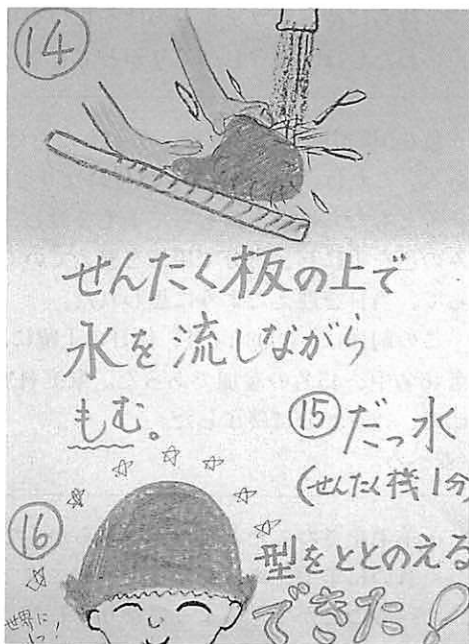 ⑭
せんたく板の上で
水を流しながら
もむ。
⑮だっ水
(せんたく機1分
⑯
型をととのえる
できた!
世界に